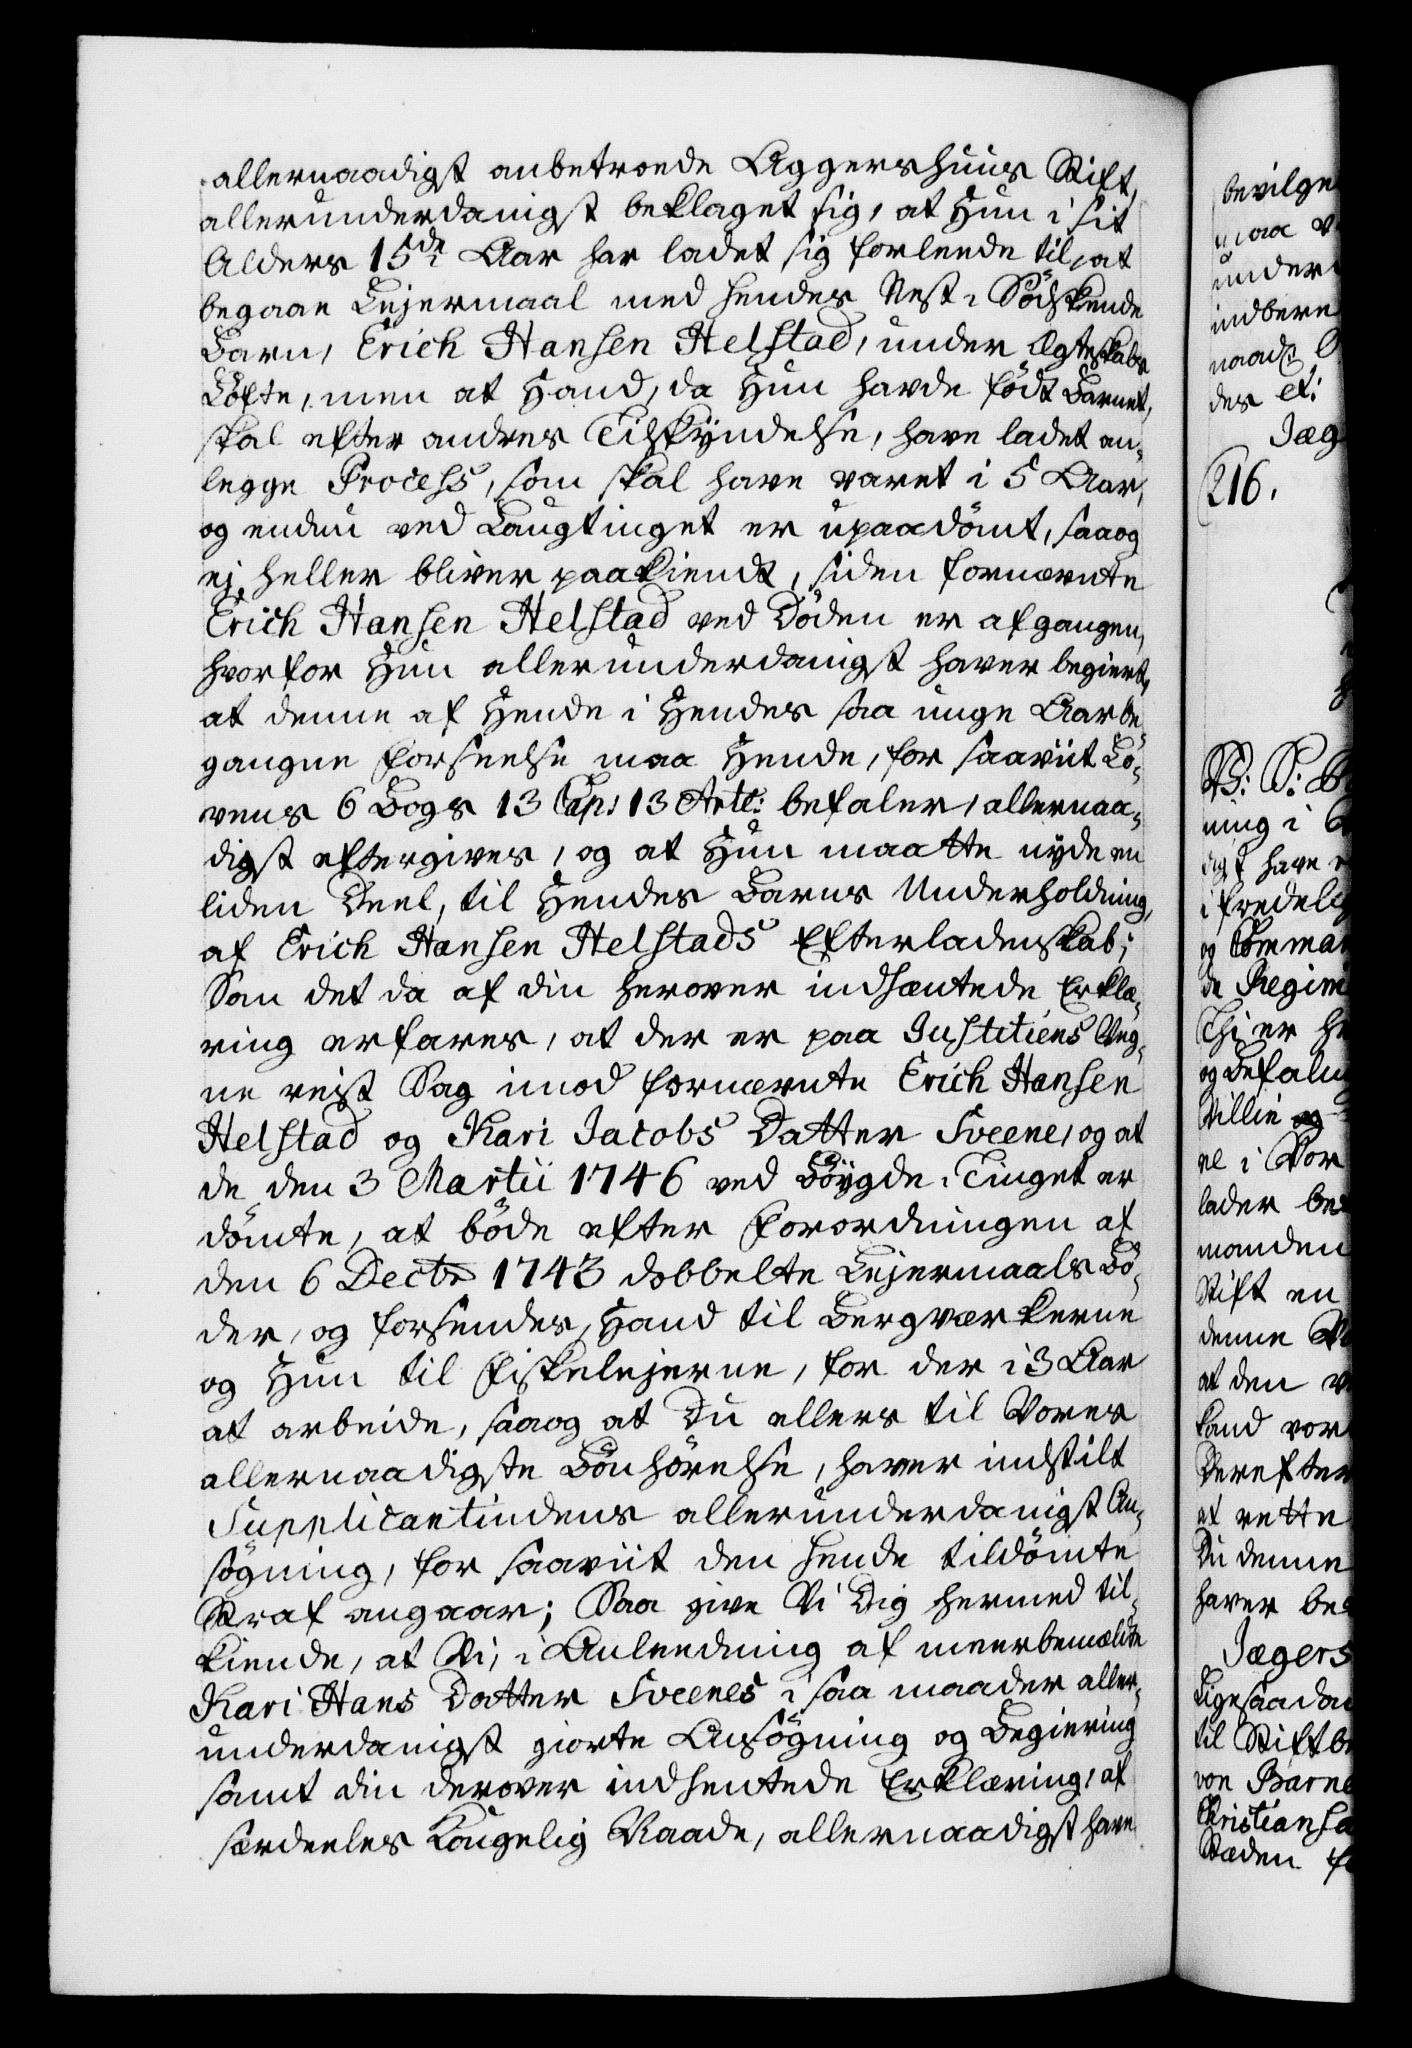 allernaadigst anbetroede Aggershuus Stift,
allerunderdanigst beklaget sig, at Hun i sit
Alders 15de Aar har ladet sig forleede til, at
begaae Lejermaal med hendes Nest-Södskende
Barn, Erich Hansen Helstad, under Ægteskabs
Löfte, men at Hand, da Hun havde födt Barnet,
skal efter andres Tilskÿndelse, have ladet an-
legge Process, som skal have varet i 5 Aar,
og endnu ved Laugtinget er upaadömt, saaog
ej heller bliver paakiendt, siden fornævnte
Erich Hansen Helstad ved Döden er afgangen,
hvorfor Hun allerunderdanigst haver begiert,
at denne af Hende i Hendes saa unge Aar be-
gangne Forseelse maa Hende, for saaviit Lo-
vens 6 Bogs 13 Cap: 13 Artl: befaler, allernaa-
digst eftergives, og at Hun maatte nÿde en
liden Deel, til Hendes Barns Underholdning,
af Erich Hansen Helstads Efterladenskab;
Som det da af din herover indhæntede Erklæ-
ring erfares, at der er paa Justitiens Veg-
ne reist Sag imod fornævnte Erich Hansen
Helstad og Kari Jacobs Datter Sveene, og at
de den 3 Martii 1746 ved Böÿgde-Tinget er
dömte, at böde efter Forordningen af
den 6 Decbr 1743 dobbelte Lejermaals Bö-
der, og forsendes, Hand til Bergværkerne
og Hun til Fiskelejerne, for der i 3 Aar
at arbeide, saaog at Du ellers til Vores
allernaadigste Bönhörelse, haver indstilt
Supplicantindens allerunderdanigst An-
sögning, for saaviit den hende tildömte
Straf angaar; Saa give Vi Dig hermed til-
kiende, at Vi, i Anleedning af meerbemælte
Kari Hans Datter Sveenes i saa maader aller-
underdanigst giorte Ansögning og Begiering
samt din derover indhentede Erklæring, af
særdeeles Kongelig Naade, allernaadigst have
bevilge
maa
under
indbere
naad
des et:
Jæg
216.
ning i
digst have
i fredeli
og Comman
de Regim
Thi er
og Befali
Villie og
re i Vor
lader be
manden
Stift en
denne
at den
kand vor
Derefter
at rette
Du denne
haver be
Jægers
Ligesaada
til Stiftbe
von Barne
Christiansa
Steden